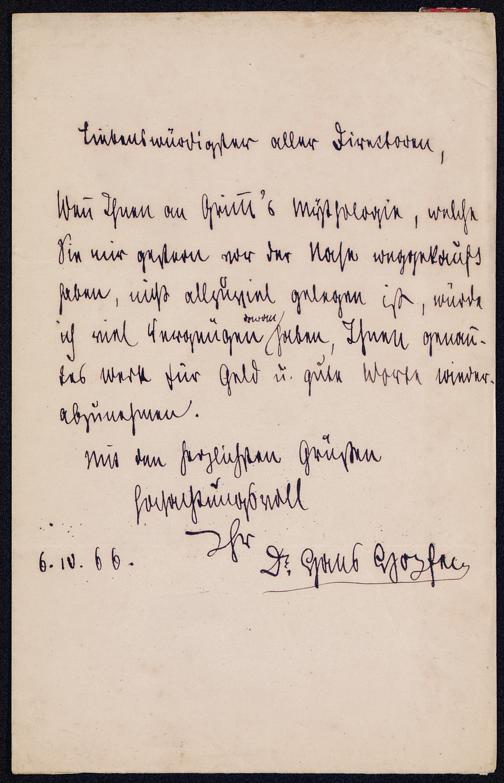 Liebenswürdigster aller Directoren,
Weñ Ihnen an Grim̃'s Mÿthologie, welche
Sie mir gestern vor der Nase weggekauft
haben, nicht allzuviel gelegen ist, würde
ich viel Vergnügen daran haben, Ihnen genan-
tes Werk für Geld u. gute Worte wieder-
abzunehmen.
Mit den herzlichsten Grüßen
hochachtungsvoll
Ihr
6. IV. 66. Dr. Hans Hopfen